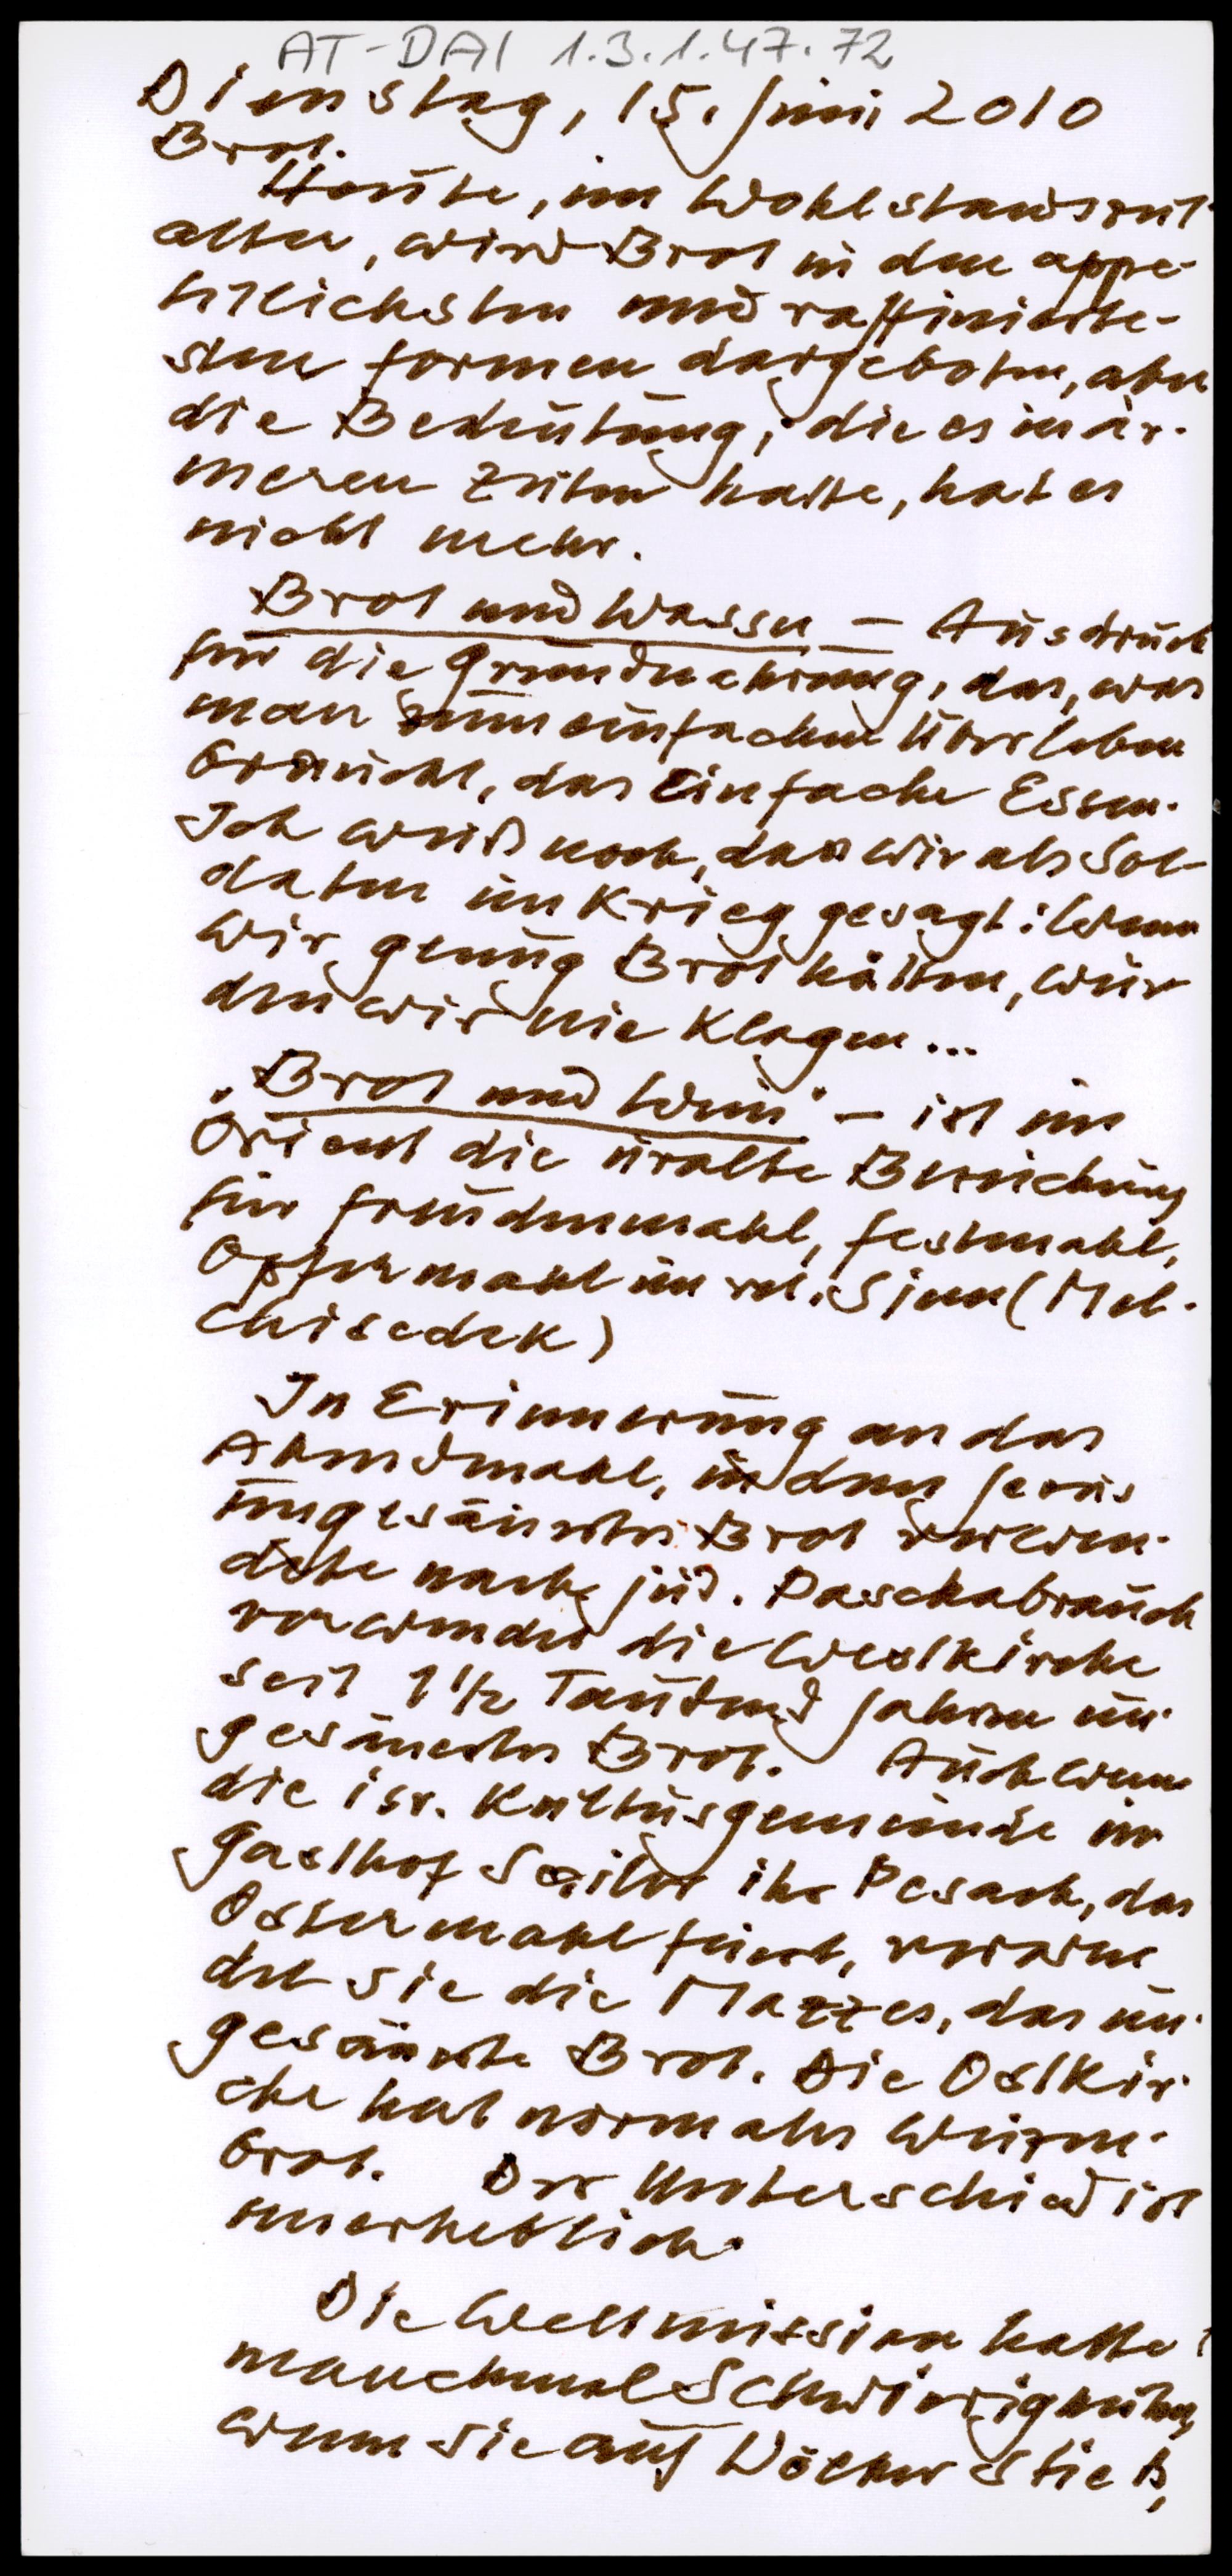 AT-DAI 1.3.1.47.72
Dienstag, 15. Juni 2010
Brot.
Heute, im Wohlstandszeit-
alter, wird Brot in den appe-
titlichsten und raffinierte-
sten Formen dargeboten, aber
die Bedeutung, die es in är-
meren Zeiten hatte, hat es
nicht mehr.
Brot und Wasser – Ausdruck
für die Grundnahrung, das, was
man zum einfachen Überleben
braucht, das Einfache Essen.
Ich weiß noch, dass wir als Sol-
daten im Krieg gesagt: Wenn
wir genug Brot hätten, wür
den wir nie klagen...
"Brot und Wein" – ist im
Orient die uralte Bezeichnung
für Freudenmahl, Festmahl,
Opfermahl im rel. Sinn (Mel-
chisedek)
In Erinnerung an das
Abendmahl, in dem Jesus
ungesäuertes Brot verwen-
dete nach jüd. Paschabrauch
verwendet die Westkirche
seit 1 1/2 Tausend Jahren un-
gesäuertes Brot. Auch wenn
die isr. Kultusgemeinde im
Gasthof Sailer ihr Pesach, das
Ostermahl feiert, verwen
det sie die Mazzes, das un-
gesäuerte Brot. Die Ostkir-
che hat normales Weizen-
brot. Der Unterschied ist
unerheblich.
Die Weltmission hatte
manchmal Schwierigkeiten,
wenn sie auf Völker stieß,